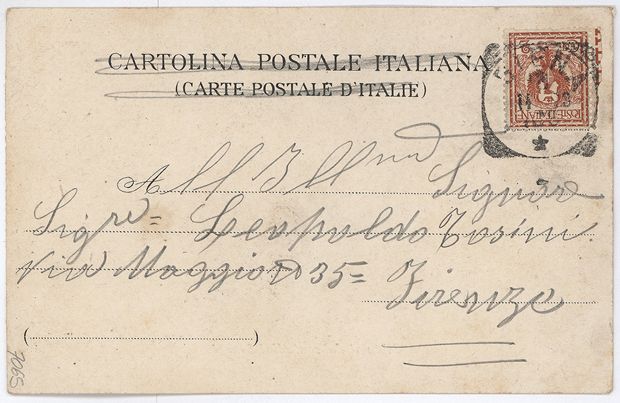 CARTOLINA POSTALE ITALIANA
(CARTE POSTALE D'ITALIE)
All Illmo Signore
Sigre= Leopoldo Tosini
Via Maggio 35=
Firenze
7065